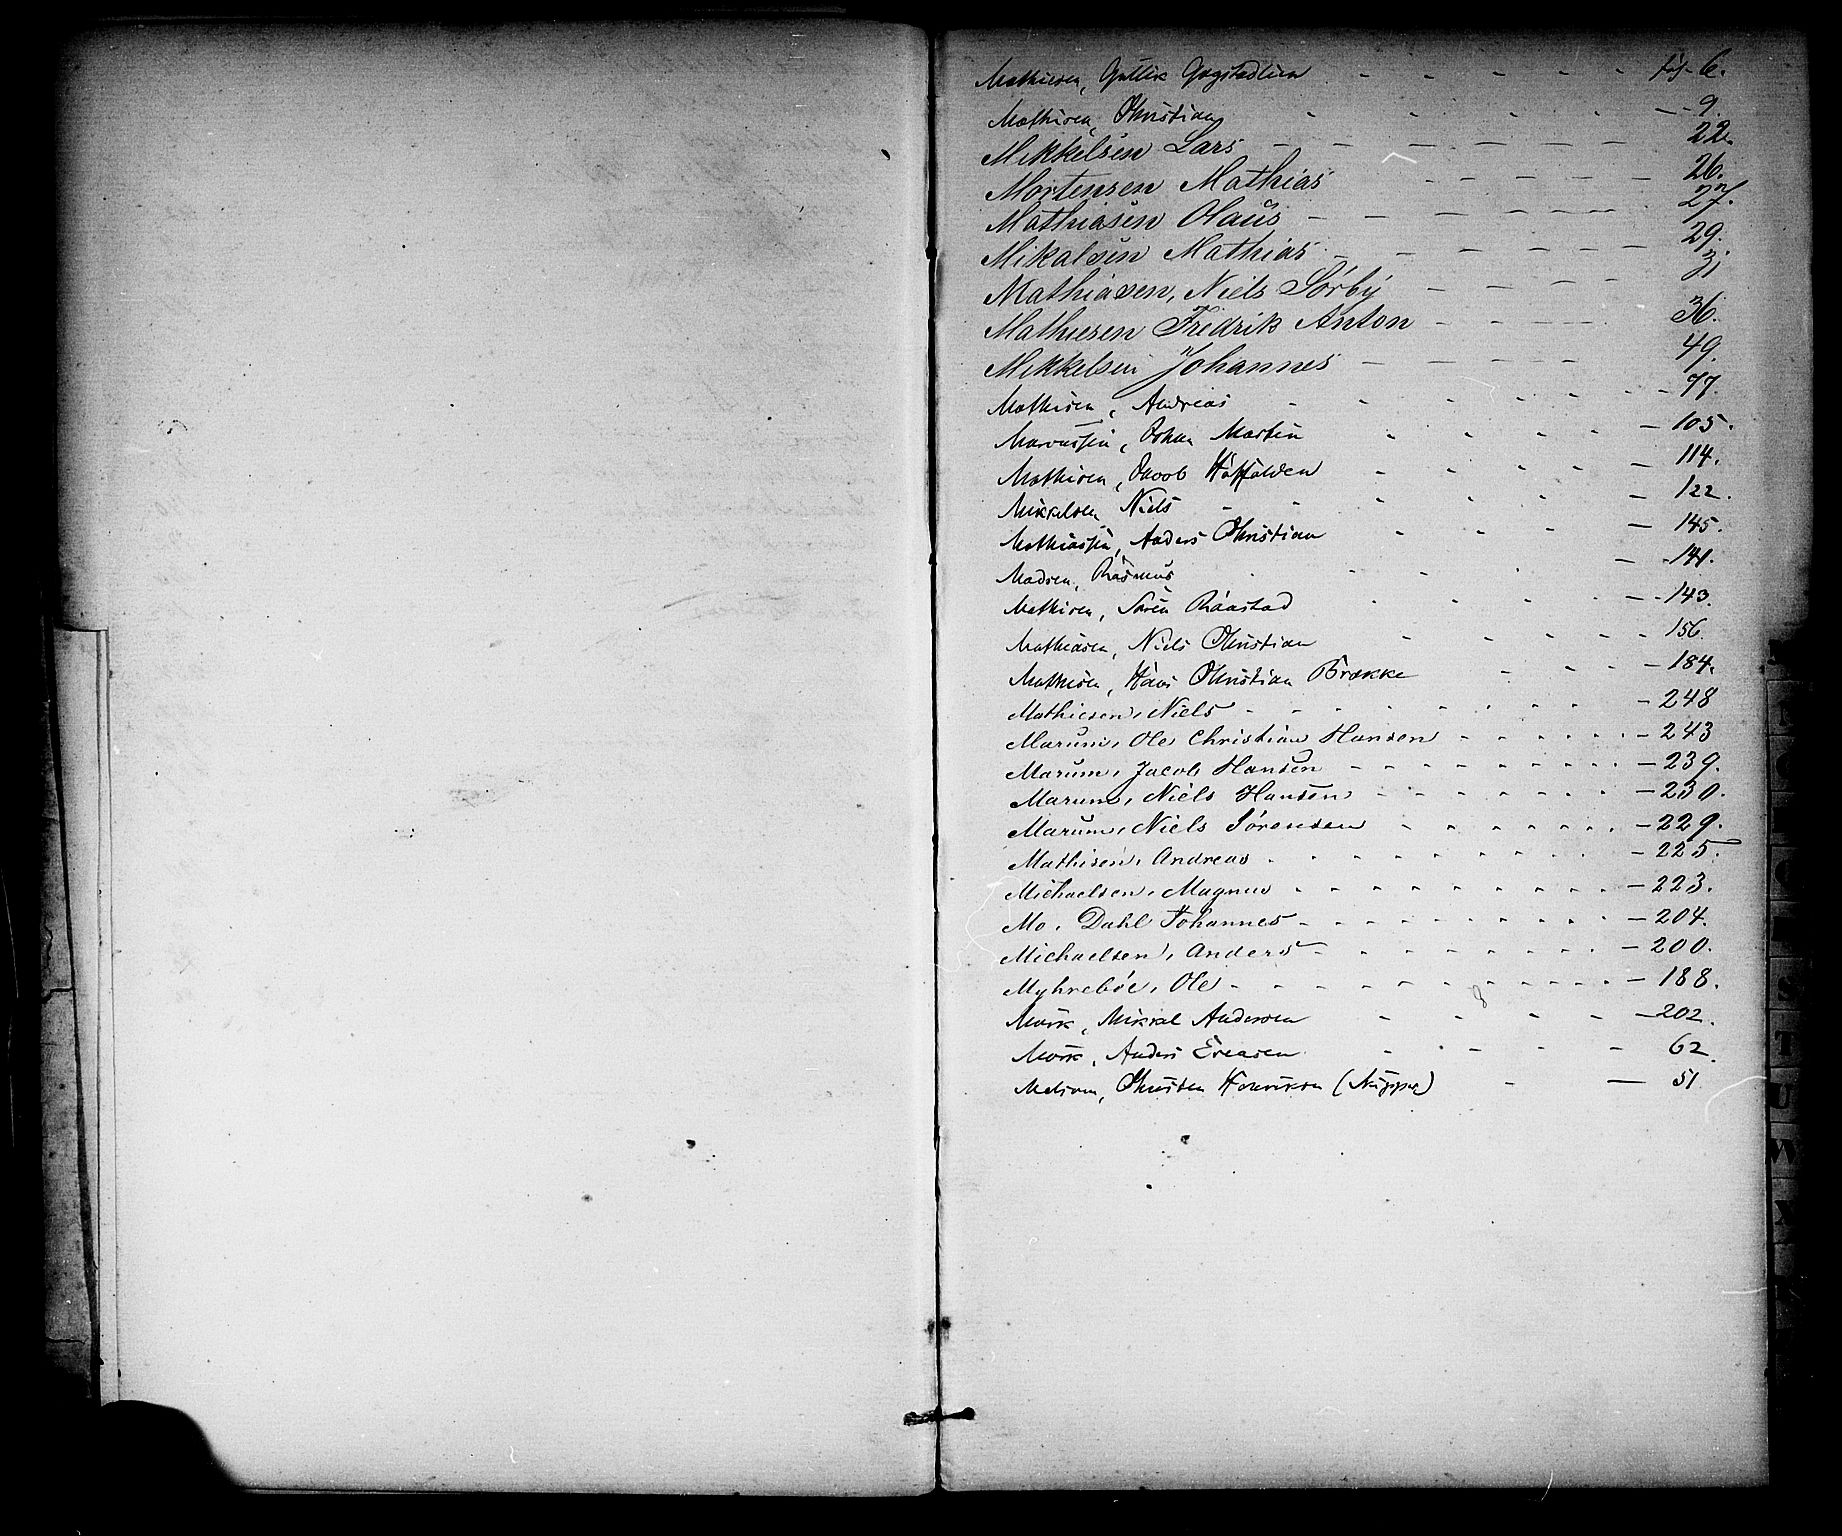 Mathiesen, Gullik Gogstadlien - - - - - fol. 6.
Mathisen, Christian - - - - - 9.
Mikkelsen Lars - - - - - 22.
Mortensen Mathias - - - - - 26.
Mathiasen Olaus - - - - - 27.
Mikalsen Mathias - - - - - 29.
Mathiasen, Niels Sørby - - - - 31
Mathiesen Fredrik Anton - - - - 36.
Mikkelsen Johannes - - - - 49.
Mathisen, Andreas - - - - - 77.
Marcussen, Johan Martin - - - - - 105.
Mathisen, Jacob - - - - - 114.
Mikkelsen, Niels - - - - - 122.
Mathiassen, Anders Christian - - - - 145.
Madsen, Rasmus - - - - - 141.
Mathisen, Søren Raastad - - - - - 143.
Mathiasen, Niels Christian - - - - - 156.
Mathisen, Hans Christian Brække - - - - 184.
Mathiesen, Niels - - - - - - - 248
Marum, Ole Christian Hansen - - - - - - 243
Marum, Jacob Hansen - - - - - - - 239.
Marum, Niels Hansen - - - - - - - 230.
Marum, Niels Sørensen - - - - - - 229.
Mathisen, Andreas - - - - - - - 225.
Michaelsen, Magnus - - - - - - - 223.
Mo, Dahl Johannes - - - - - - - 204.
Michaelsen, Anders - - - - - - - 200.
Myhreböe, Ole - - - - - - - 188.
Mørk, Mikkel Andersen - - - - - 202.
Mørk, Anders - - - - - 62.
Christen Henriksen - - 51
S
T
U
W
X